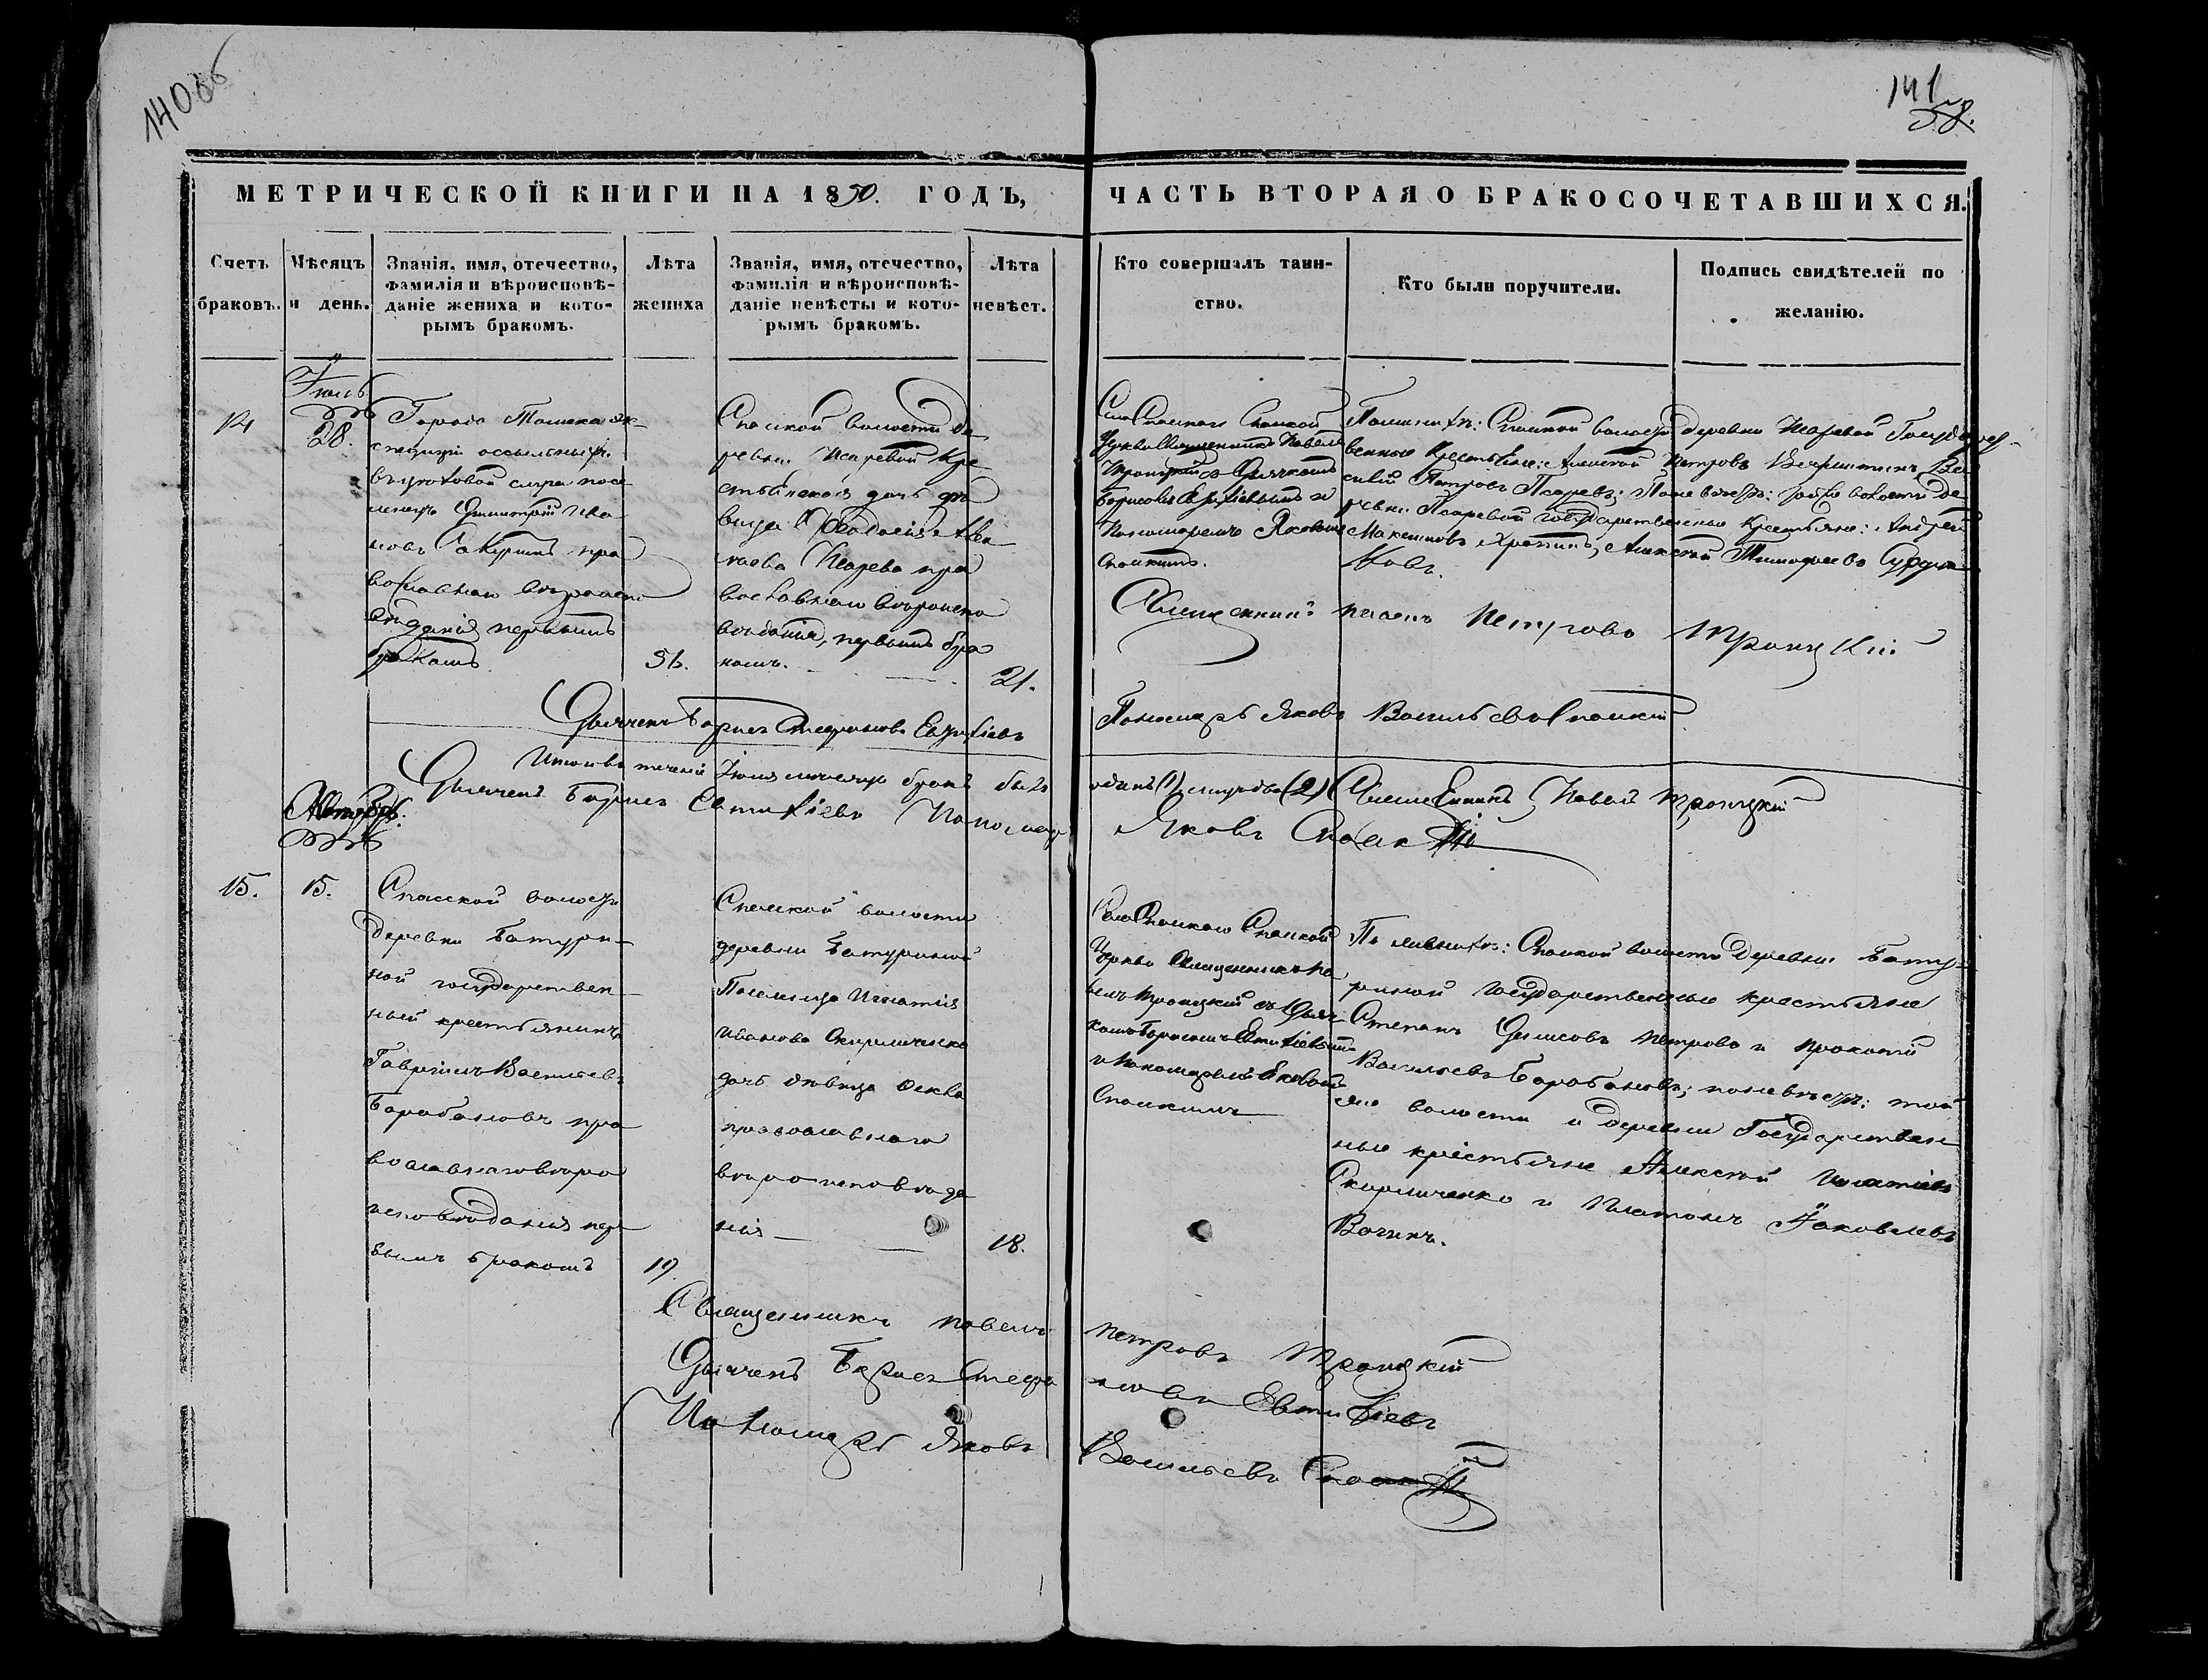 140об
141
58.
МЕТРИЧЕСКОЙ КНИГИ НА 1850. ГОДЪ,
ЧАСТЬ ВТОРАЯ О БРАКОСОЧЕТАВШИХСЯ.
Счетъ браковъ.
Мѣсяцъ и день.
Званія, имя, отечество,
фамилія и вѣроисповѣ-
даніе жениха и кото-
рымъ бракомъ.
Лѣта
жениха
Званія, имя, отечество,
фамилія и вѣроисповѣ-
даніе невѣсты и кото-
рымъ бракомъ.
Лѣта
невѣст.
Кто совершалъ таин-
ство.
Кто были поручители.
Подпись свидѣтелей по
желанію.
Іюль
14
28.
Города Томска эк-
спедиціи оссыльныхъ
посе
ленецъ Димитрій Ива
новъ пра
вославнаго вѣроиспо
вѣданія первымъ
бракомъ
Спасской волости де
ревни Писаревой Кре
стьянская дочь дѣ
вица Феодосія
Писарева пра
вославнаго вѣроиспо
вѣданія, первымъ бра
комъ.
21.
Села Спаскаго Спаской
Церкви Священникъ Павелъ
Троицкій съ Дьячкомъ
Борисомъ Евтихіевымъ и
Пономаремъ Яковомъ
Спаскимъ.
По женихѣ: Спаской волости деревни Писаревой Государст-
венные Крестьяне: Алексей Петровъ Ва
силій Петровъ Псаревъ; По невѣстѣ: той же волости де
ревни Псаревой государственные Крестьяне: Андрей
Максимовъ Алексей Тимофеевъ
ковъ.
Священникъ Павелъ Петровъ Троицкій
Дьячекъ Борисъ Стефановъ Евтихіевъ
Пономарь Яковъ Васильевъ Спаскій
Итого въ теченіи Іюля месяца бракъ былъ
одинъ (1), мужеска (2) Священникъ Павелъ Троицкій
Дьячекъ Борисъ Евтихіевъ Пономарь
Яковъ Спаскій
Октябрь.
15.
15.
Спасской волости
деревни Батури-
ной государствен-
ный крестьянинъ
Гавріилъ Васильевъ
Барабановъ пра
вославнаго вѣро
исповѣданія пер
вымъ бракомъ
19.
Спаской волости
деревни Батуриной
Поселенца Игнатія
Иванова Скирмиченко
дочь дѣвица Фекла
православнаго
вѣроисповѣда
нія
18.
Села Спаскаго Спаской
Церкви Священникъ Па
велъ Троицкій съ Дьяч
комъ Борисомъ Евтихіевымъ
и пономаремъ Яковомъ
Спаскимъ
По женихѣ: Спаской волости деревни Бату-
риной Государственные крестьяне
Степанъ Денисовъ Петровъ и Прокопій
Васильевъ Барабановъ; по невѣстѣ: той
же волости и деревни Государствен
ные крестьяне Алексей Игнатіевъ
Скирмиченко и Платонъ Яковлевъ
Священникъ Павелъ Петровъ Троицкій
Дьячекъ Борисъ Стефановъ Евтихіевъ
Пономарь Яковъ Васильевъ Спаскій